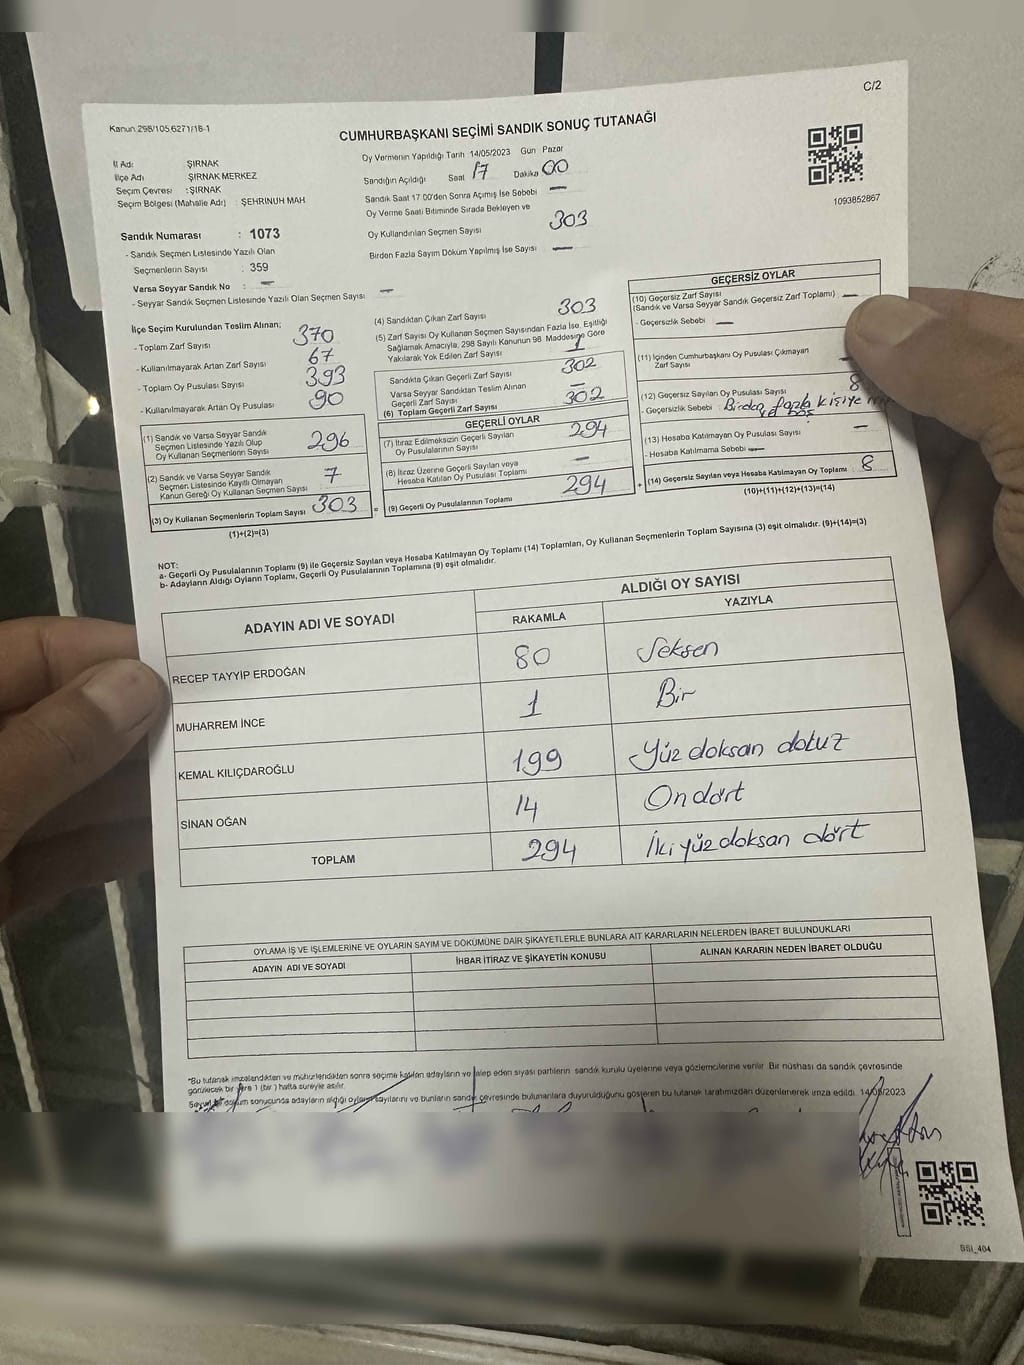 C/2
Kanun 298/105,6271/18-1
CUMHURBAŞKANI SEÇİMİ SANDIK SONUÇ TUTANAĞI
İl Adı: ŞIRNAK
İlçe Adı ŞIRNAK MERKEZ
Seçim Çevresi :ŞIRNAK
Seçim Bölgesi (Mahalle Adı) : ŞEHRİNUH MAH
Oy Vermenin Yapıldığı Tarih 14/05/2023 Gün Pazar
Sandığın Açıldığı Saat 17 Dakika 00
Sandık Saat 17 00'den Sonra Açımış İse Sebebi —
Oy Verme Saati Bitiminde Sırada Bekleyen ve
Oy Kullandırılan Seçmen Sayısı 303
Birden Fazla Sayım Döküm Yapılmış İse Sayısı —
1093852867
Sandık Numarası : 1073
- Sandık Seçmen Listesinde Yazılı Olan
Seçmenlerin Sayısı : 359
Varsa Seyyar Sandık No : —
- Seyyar Sandık Seçmen Listesinde Yazılı Olan Seçmen Sayısı —
İlçe Seçim Kurulundan Teslim Alınan;
- Toplam Zarf Sayısı 370
- Kullanılmayarak Artan Zarf Sayısı 67
- Toplam Oy Pusulası Sayısı 393
- Kullanılmayarak Artan Oy Pusulası 90
(1) Sandık ve Varsa Seyyar Sandık
Seçmen Listesinde Yazılı Olup
Oy Kullanan Seçmenlerin Sayısı 296
(2) Sandık ve Varsa Seyyar Sandık
Seçmen Listesinde Kayıtlı Olmayan
Kanun Gereği Oy Kullanan Seçmen Sayısı 7
(3) Oy Kullanan Seçmenlerin Toplam Sayısı 303
(1)+(2)=(3)
(4) Sandıktan Çıkan Zarf Sayısı 303
(5) Zarf Sayısı Oy Kullanan Seçmen Sayısından Fazla İse, Eşitliği
Sağlamak Amacıyla, 298 Sayılı Kanunun 98. Maddesine Göre
Yakılarak Yok Edilen Zarf Sayısı 1
Sandıkta Çıkan Geçerli Zarf Sayısı 302
Varsa Seyyar Sandıktan Teslim Alınan
Geçerli Zarf Sayısı —
(6) Toplam Geçerli Zarf Sayısı 302
GEÇERLİ OYLAR
(7) İtiraz Edilmeksizin Geçerli Sayılan
Oy Pusulalarının Sayısı 294
(8) İtiraz Üzerine Geçerli Sayılan veya
Hesaba Katılan Oy Pusulası Toplamı —
= (9) Geçerli Oy Pusulalarının Toplamı 294 +
GEÇERSİZ OYLAR
(10) Geçersiz Zarf Sayısı
(Sandık ve Varsa Seyyar Sandık Geçersiz Zarf Toplamı) —
- Geçersizlik Sebebi —
(11) İçinden Cumhurbaşkanı Oy Pusulası Çıkmayan
Zarf Sayısı —
(12) Geçersiz Sayılan Oy Pusulası Sayısı 8
- Geçersizlik Sebebi : Birden fazla kişiye
(13) Hesaba Katılmayan Oy Pusulası Sayısı —
- Hesaba Katılmama Sebebi —
(14) Geçersiz Sayılan veya Hesaba Katılmayan Oy Toplamı : 8
(10)+(11)+(12)+(13)=(14)
NOT:
a- Geçerli Oy Pusulalarının Toplamı (9) ile Geçersiz Sayılan veya Hesaba Katılmayan Oy Toplamı (14) Toplamları, Oy Kullanan Seçmenlerin Toplam Sayısına (3) eşit olmalıdır. (9)+(14)=(3)
b- Adayların Aldığı Oyların Toplamı, Geçerli Oy Pusulalarının Toplamına (9) eşit olmalıdır.
ADAYIN ADI VE SOYADI
ALDIĞI OY SAYISI
RAKAMLA YAZIYLA
RECEP TAYYİP ERDOĞAN 80 Seksen
MUHARREM İNCE 1 Bir
KEMAL KILIÇDAROĞLU 199 Yüz doksan dokuz
SİNAN OĞAN 14 On dört
TOPLAM 294 İki yüz doksan dört
OYLAMA İŞ VE İŞLEMLERİNE VE OYLARIN SAYIM VE DÖKÜMÜNE DAİR ŞİKAYETLERLE BUNLARA AİT KARARLARIN NELERDEN İBARET BULUNDUKLARI
ADAYIN ADI VE SOYADI İHBAR İTİRAZ VE ŞİKAYETİN KONUSU ALINAN KARARIN NEDEN İBARET OLDUĞU
*Bu tutanak imzalandıktan ve mühürlendikten sonra seçime katılan adayların ve talep eden siyasi partilerin sandık kurulu üyelerine veya gözlemcilerine verilir. Bir nüshası da sandık çevresinde
görülecek bir yere 1 (bir) hafta süreyle asılır.
Sayım döküm sonucunda adayların aldığı oyların sayılarını ve bunların sandık çevresinde bulunanlara duyurulduğunu gösteren bu tutanak tarafımızdan düzenlenerek imza edildi. 14/05/2023